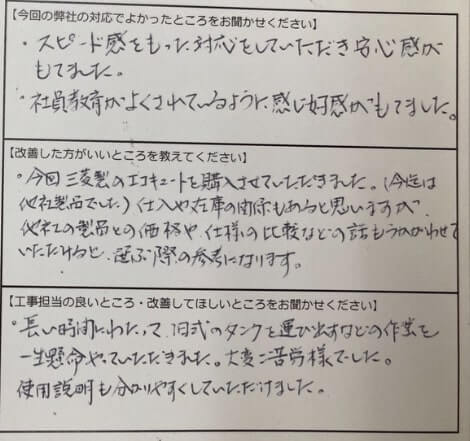 【今回の弊社の対応でよかったところをお聞かせください】
・スピード感をもった対応をしていただき安心感が
もてました。
・社員教育がよくされているように感じ好感がもてました。
【改善した方がいいところを教えてください】
・今回三菱製のエコキュートを購入させていただきました。(今迄は
他社製品でした)仕入や在庫の関係もあると思いますが、
他社の製品との価格や仕様の比較などの話もうかがわせて
いただけると、選ぶ際の参考になります。
【工事担当の良いところ・改善してほしいところをお聞かせください】
・長い時間にわたって、旧式のタンクを運び出すなどの作業を
一生懸命やっていただきました。大変ご苦労様でした。
使用説明も分かりやすくしていただけました。